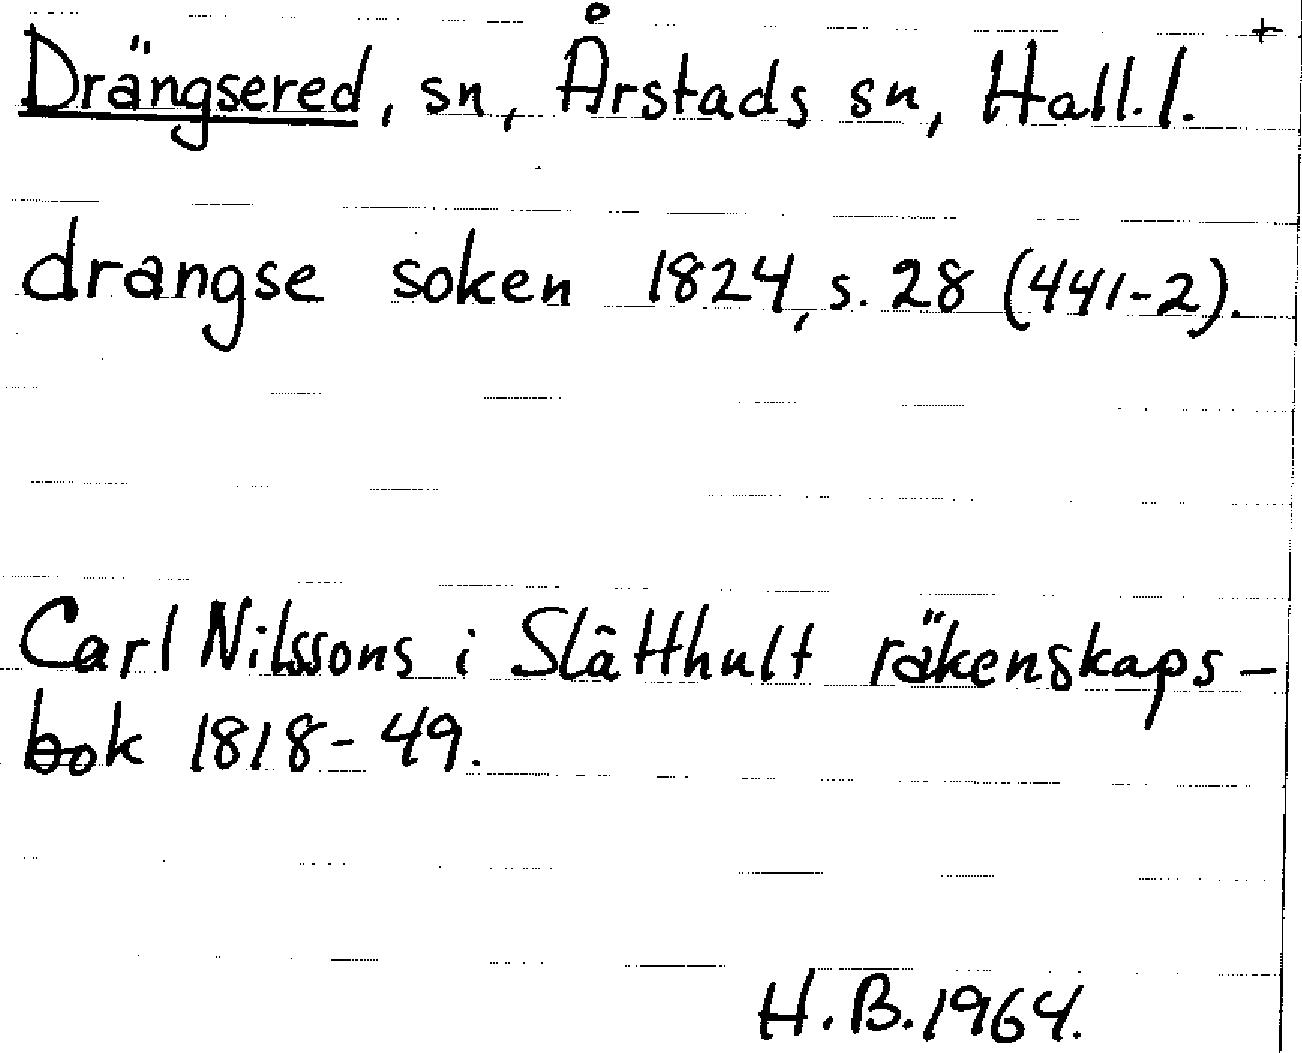 +
Drängsered, sn, Årstads sn, Hall. l.
drangse soken 1824, s. 28 (441-2).
Carl Nilssons i Slätthult räkenskaps-
bok 1818-49.
H.B. 1964.